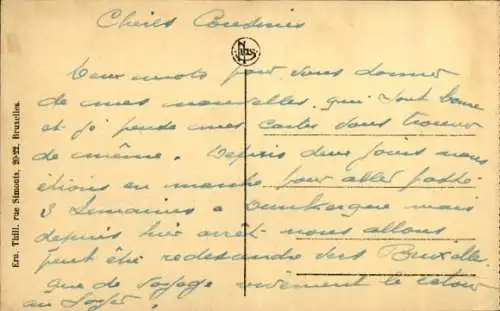 Chers Cousines
Deux mots pour vous donner
de mes nouvelles qui sont bonne
et j'e pense mes cartes vous trouver
de même. Depuis deux jours nous
étions en marche pour aller passé
3 semaines a Dunkergue mais
depuis hier arrêt nous allons
peut être redescendre vers Bruxelles
que de voyage vivement le retour
au foyer.
Nels
Ern. Thill, rue Simonis, 20-22, Bruxelles.